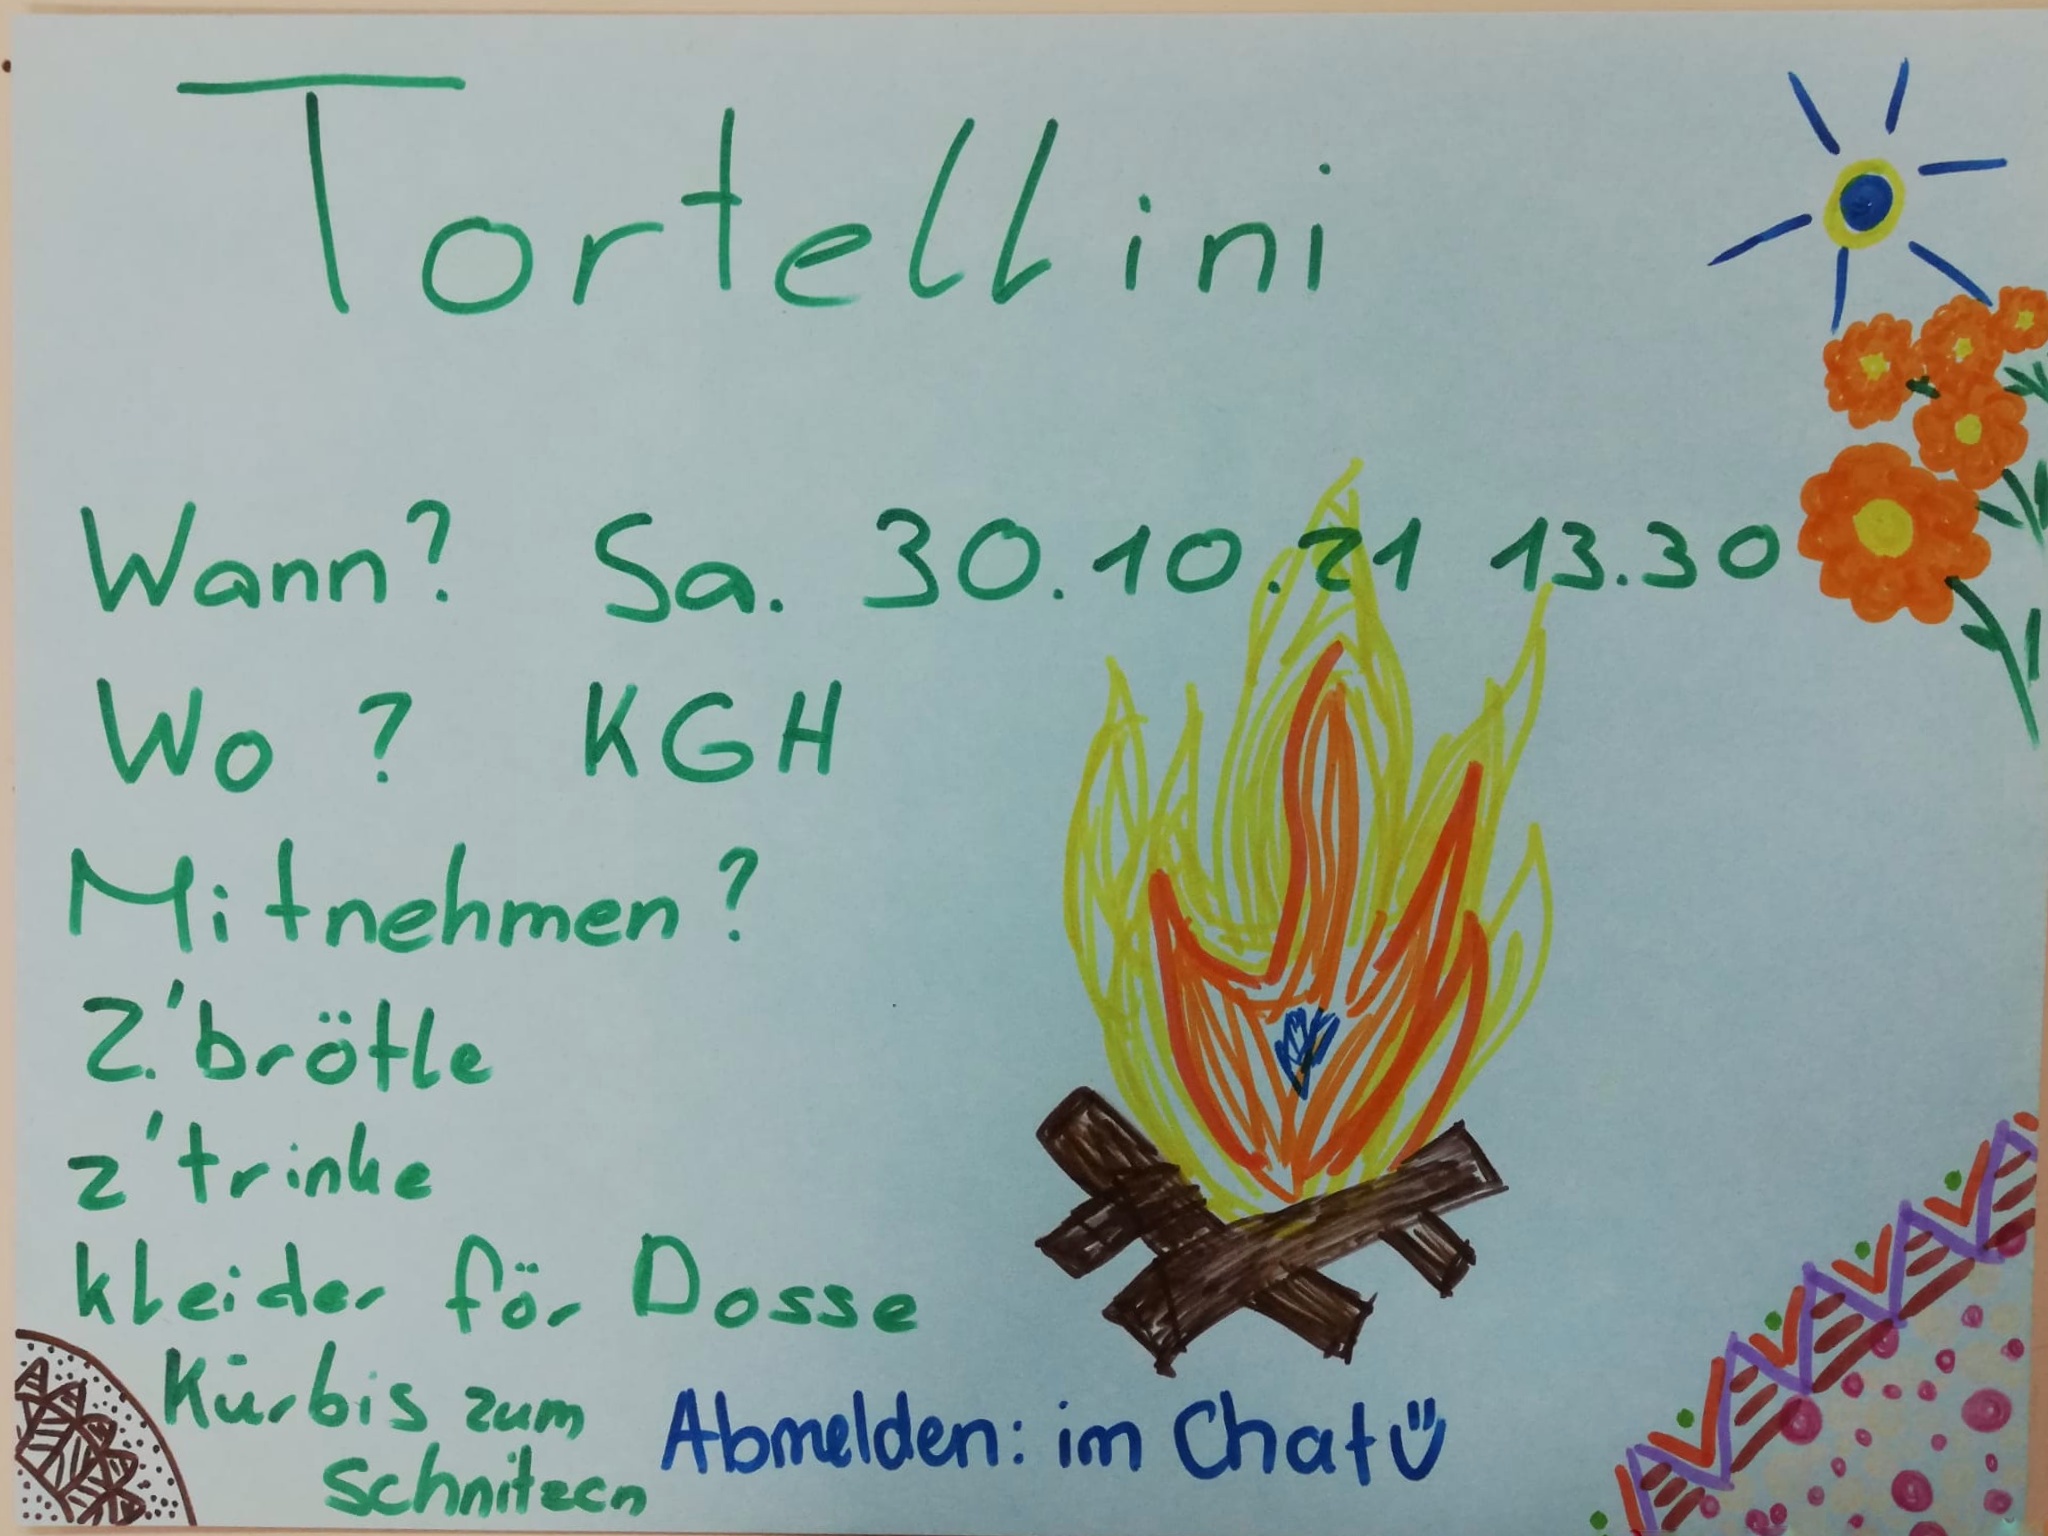 Tortellini
Wann? Sa. 30.10.21 13.30
Wo? KGH
Mitnehmen?
Z'brötle
z'trinke
kleider för Dosse
Kürbis zum
Schnitzen
Abmelden: im Chat ü